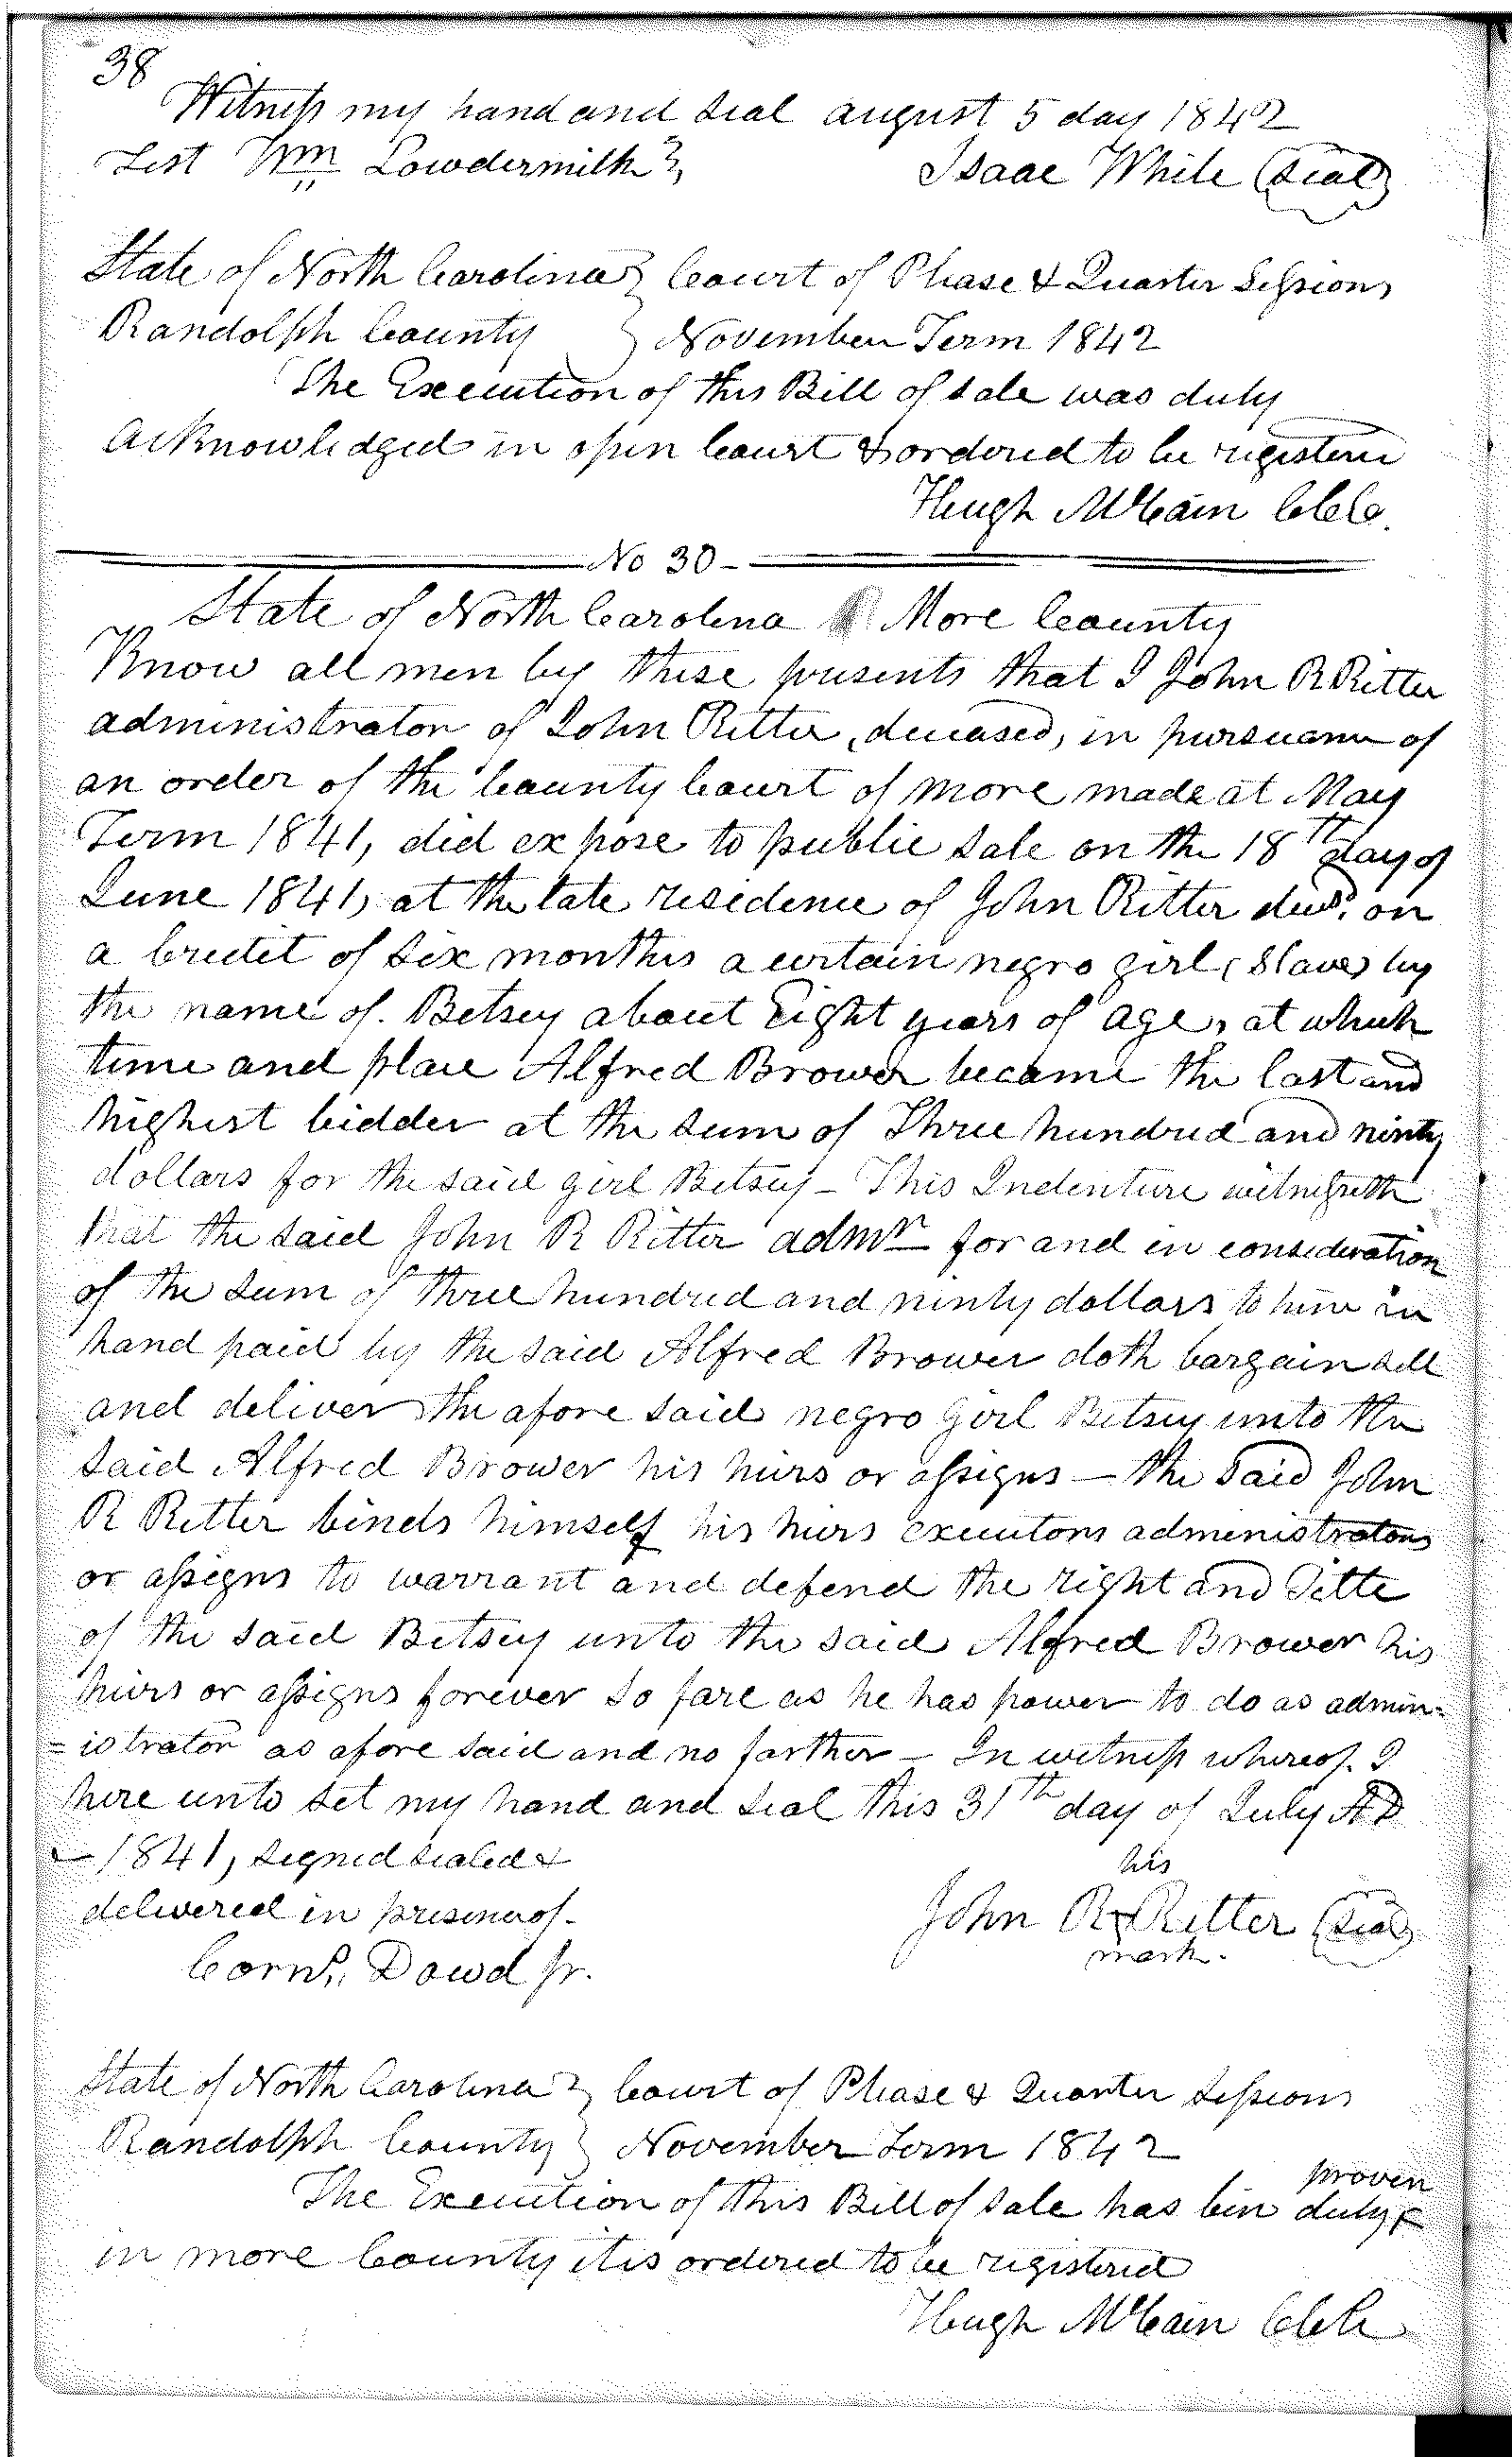 38
Witness my hand and seal august 5 day 1842
Test Wm Lowdermilk
Isaac White (seal)
State of North Carolina } Court of Please & Quarter Sessions
Randolph County } November Term 1842
The Execution of this Bill of sale was duly
acknowledged in open Court & ordered to be registere
Hugh McCain CCC.
No 30-
State of North Carolina More County
Know all men by these presents that I John R Ritter
administrator of John Ritter, deceased, in pursuance of
an order of the County Court of more made at May
Term 1841, did expose to public sale on the 18th day of
June 1841, at the late residence of John Ritter decd. on
a Credit of six months a certain negro girl (slave) by
the name of. Betsey about Eight years of age, at which
time and place Alfred Brower became the last and
highest bidder at the sum of Three hundred and ninty
dollars for the said girl Betsey - This Indenture witnesseth
that the said John R Ritter admr for and in consideration
of the sum of three hundred and ninty dollars to him in
hand paid by the said Alfred Brower doth bargain sell
and deliver the afore said negro Girl Betsey unto the
said Alfred Brower his heirs or assigns — the said John
R Ritter binds himself his heirs executors administrators
or assigns to warrant and defend the right and Title
of the said Betsey unto the said Alfred Brower his
heirs or assigns forever so fare as he has power to do as admin=
=istrator as afore said and no farther - In witness whereof. I
here unto set my hand and seal this 31th day of July AD
- 1841, signed sealed &
delivered in presence of-
his
John R x Ritter (seal)
mark.
Corns. Dowd Jr.
State of North Carolina } Court of Please & Quarter Sessions
Randolph County } November Term 1842
proven
The Execution of this Bill of sale has bin duly
in more County it is ordered to be registered
Hugh McCain CCC